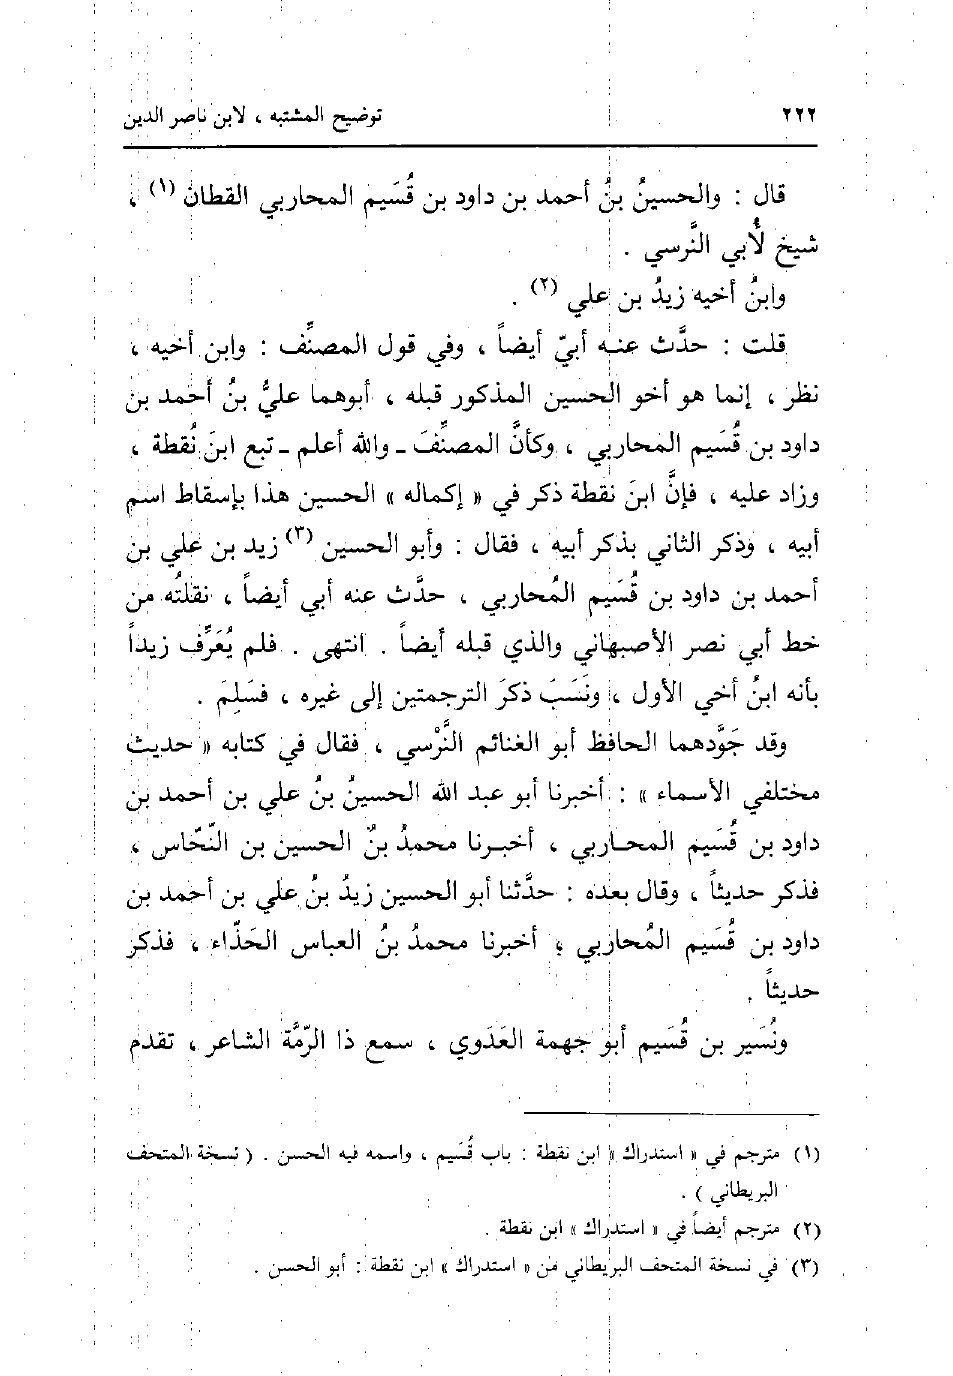 ٢٢٢ توضيح المشتبه ، لابن ناصر الدين
قال : والحسينُ بنُ أحمد بن داود بن قُسَيم المحاربي القطان (١) ،
شيخ لأُبي النَّرسي .
وابنُ أخيه زيدُ بن علي (٢) .
قلت : حدَّث عنه أبيّ أيضاً ، وفي قول المصنِّف : وابن أخيه ،
نظر ، إنما هو أخو الحسين المذكور قبله ، أبوهما عليُّ بنُ أحمد بن
داود بن قُسَيم المحاربي ، وكأنَّ المصنِّفَ - والله أعلم - تبع ابنَ نُقطة ،
وزاد عليه ، فإنَّ ابنَ نقطة ذكر في « إكماله » الحسين هذا بإسقاط اسم
أبيه ، وذكر الثاني بذكر أبيه ، فقال : وأبو الحسين (٣) زيد بن علي بن
أحمد بن داود بن قُسَيم المُحاربي ، حدَّث عنه أبي أيضاً ، نقلتُه من
خط أبي نصر الأصبهاني والذي قبله أيضاً . انتهى . فلم يُعَرِّف زيداً
بأنه ابنُ أخي الأول ، ونَسَبَ ذكرَ الترجمتين إلى غيره ، فسَلِمَ .
وقد جَوَّدهما الحافظ أبو الغنائم النَّرْسي ، فقال في كتابه « حديث
مختلفي الأسماء » : أخبرنا أبو عبد الله الحسينُ بنُ علي بن أحمد بن
داود بن قُسَيم المحاربي ، أخبرنا محمدُ بنُ الحسين بن النَّخّاس ،
فذكر حديثاً ، وقال بعده : حدَّثنا أبو الحسين زيدُ بنُ علي بن أحمد بن
داود بن قُسَيم المُحاربي ، أخبرنا محمدُ بنُ العباس الحَذّاء ، فذكر
حديثاً .
ونُسَير بن قُسَيم أبو جهمة العَدَوي ، سمع ذا الرّمَّة الشاعر ، تقدم
(١) مترجم في « استدراك » ابن نقطة : باب قُسَيم ، واسمه فيه الحسن . ( نسخة المتحف
البريطاني ) .
(٢) مترجم أيضاً في « استدراك » ابن نقطة .
(٣) في نسخة المتحف البريطاني من « استدراك » ابن نقطة : أبو الحسن .